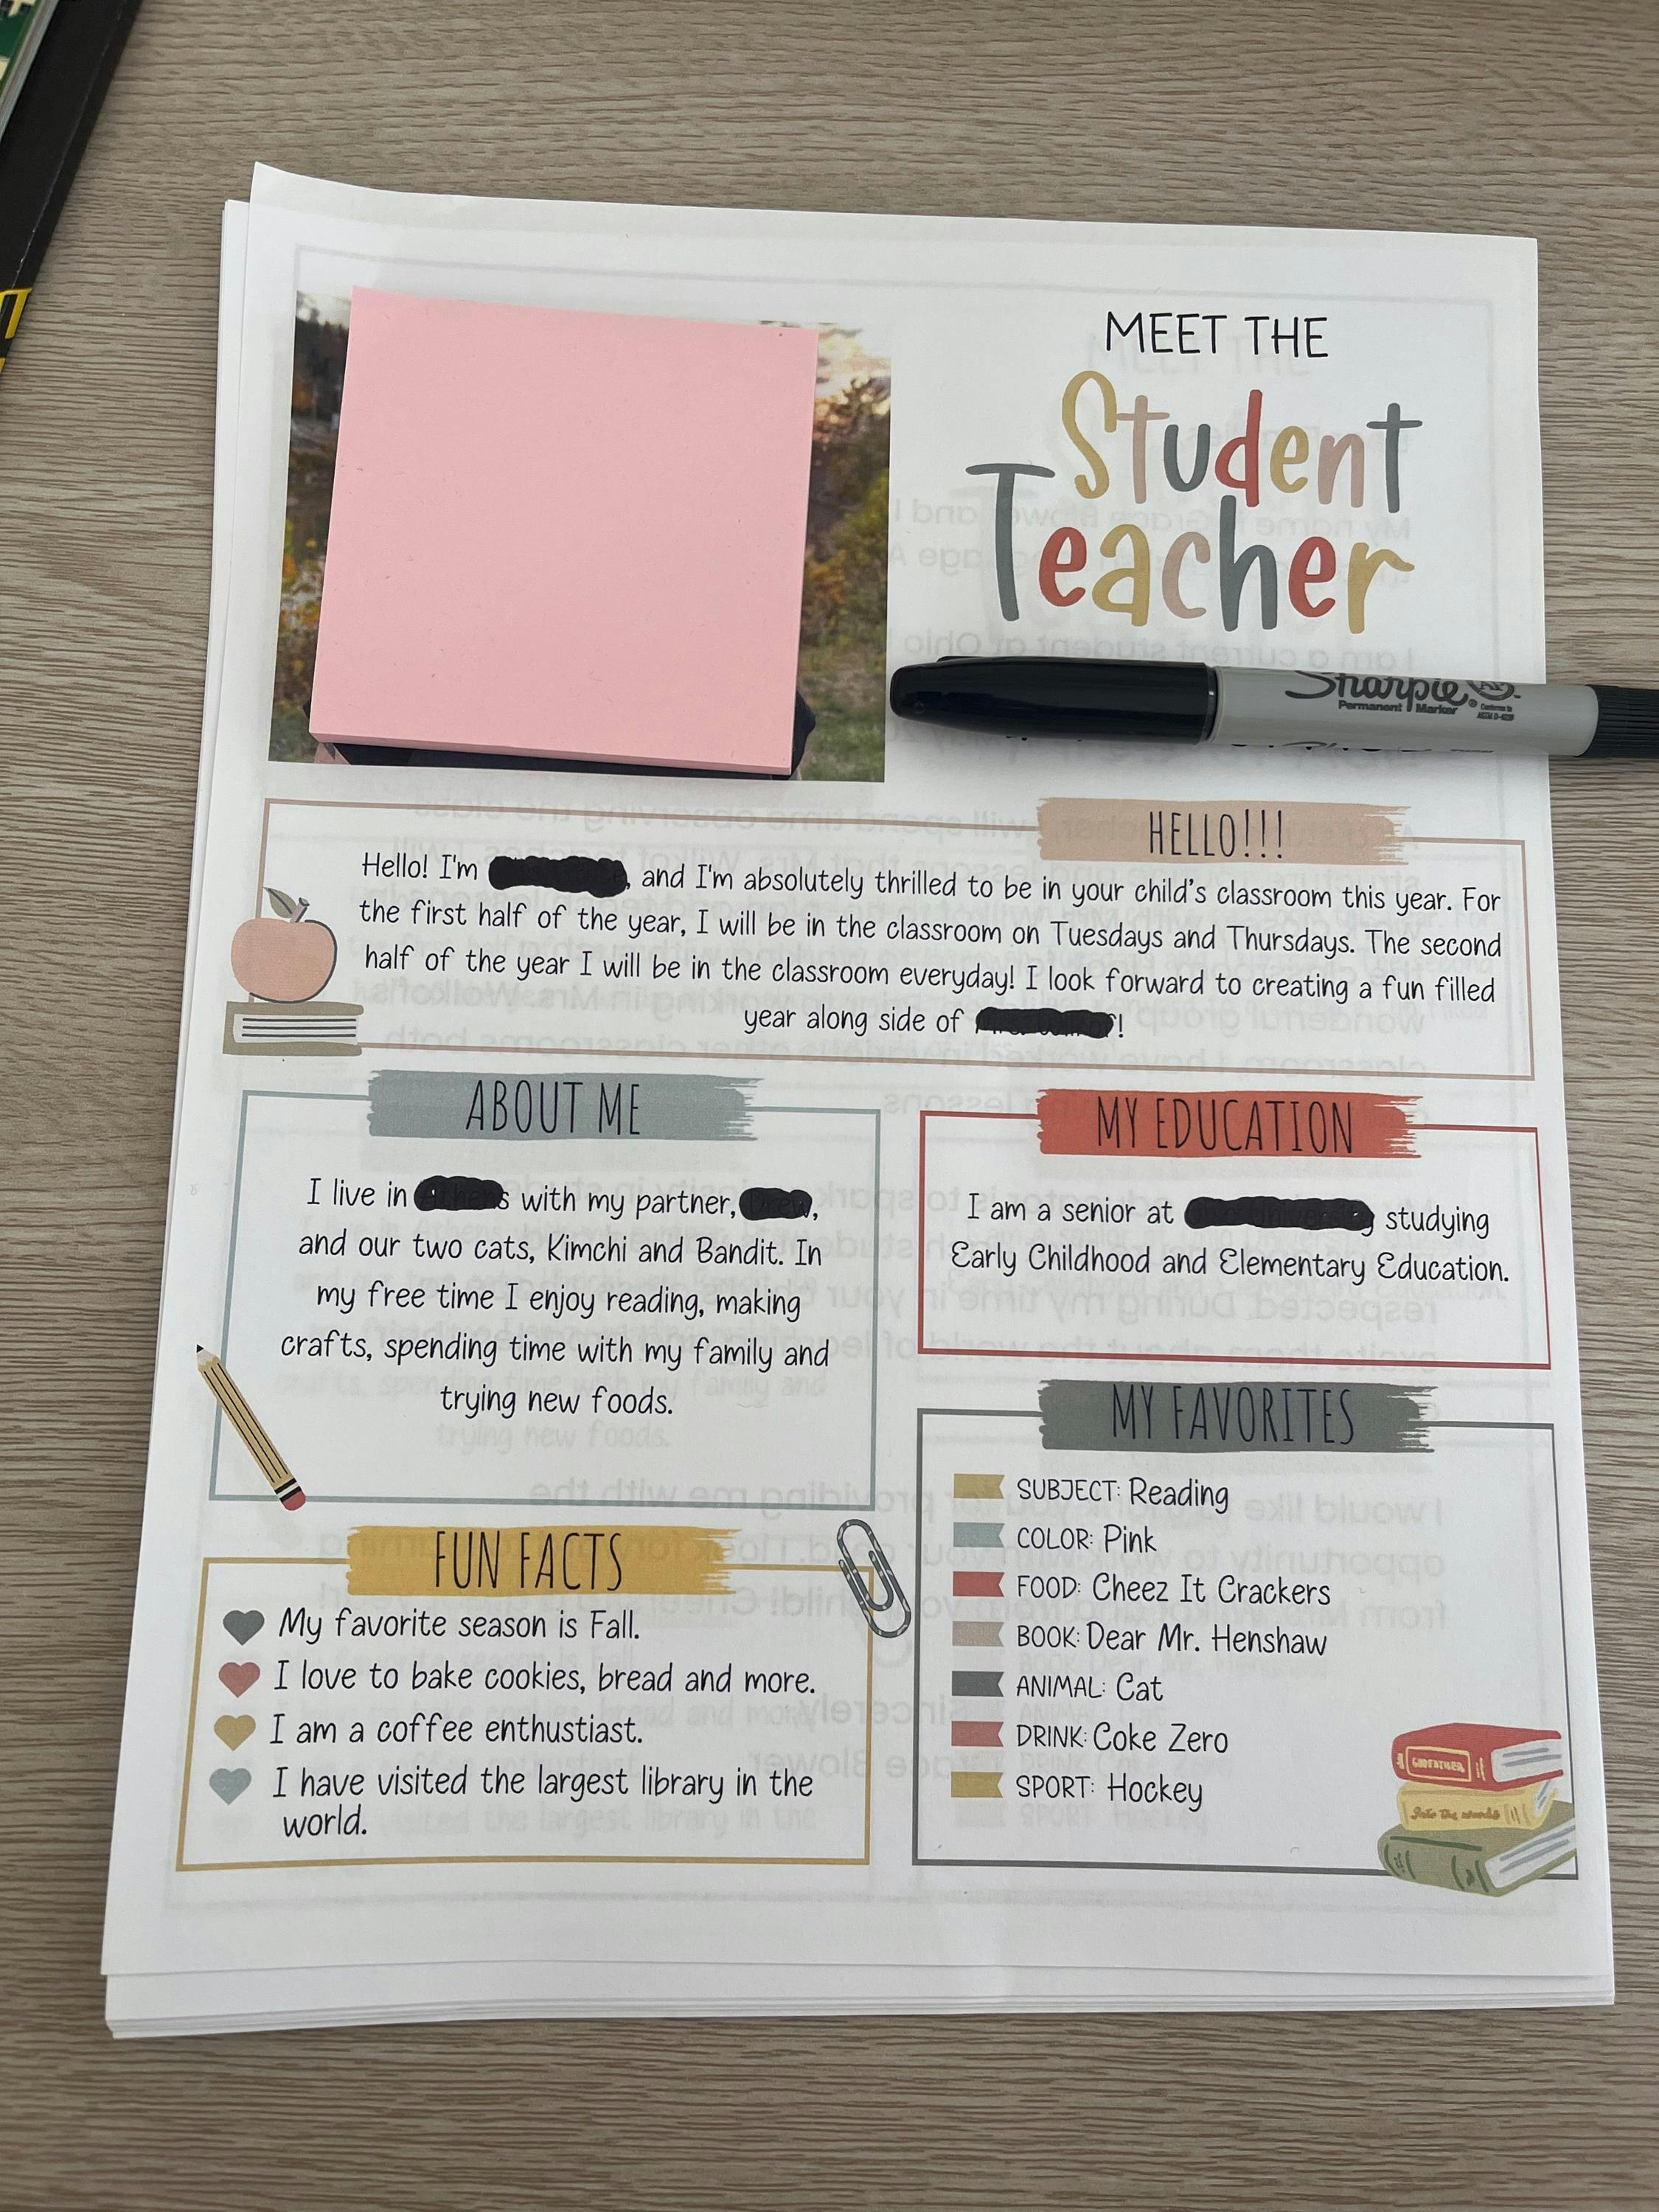 MEET THE
Student
Teacher
Sharpie
Permanent Marker
HELLO!!!
Hello! I'm , and I'm absolutely thrilled to be in your child's classroom this year. For
the first half of the year, I will be in the classroom on Tuesdays and Thursdays. The second
half of the year I will be in the classroom everyday! I look forward to creating a fun filled
year along side of !
ABOUT ME
I live in with my partner, ,
and our two cats, Kimchi and Bandit. In
my free time I enjoy reading, making
crafts, spending time with my family and
trying new foods.
MY EDUCATION
I am a senior at studying
Early Childhood and Elementary Education.
FUN FACTS
My favorite season is Fall.
I love to bake cookies, bread and more.
I am a coffee enthustiast.
I have visited the largest library in the
world.
MY FAVORITES
SUBJECT: Reading
COLOR: Pink
FOOD: Cheez It Crackers
BOOK: Dear Mr. Henshaw
ANIMAL: Cat
DRINK: Coke Zero
SPORT: Hockey
GODFATHER
Into the woods